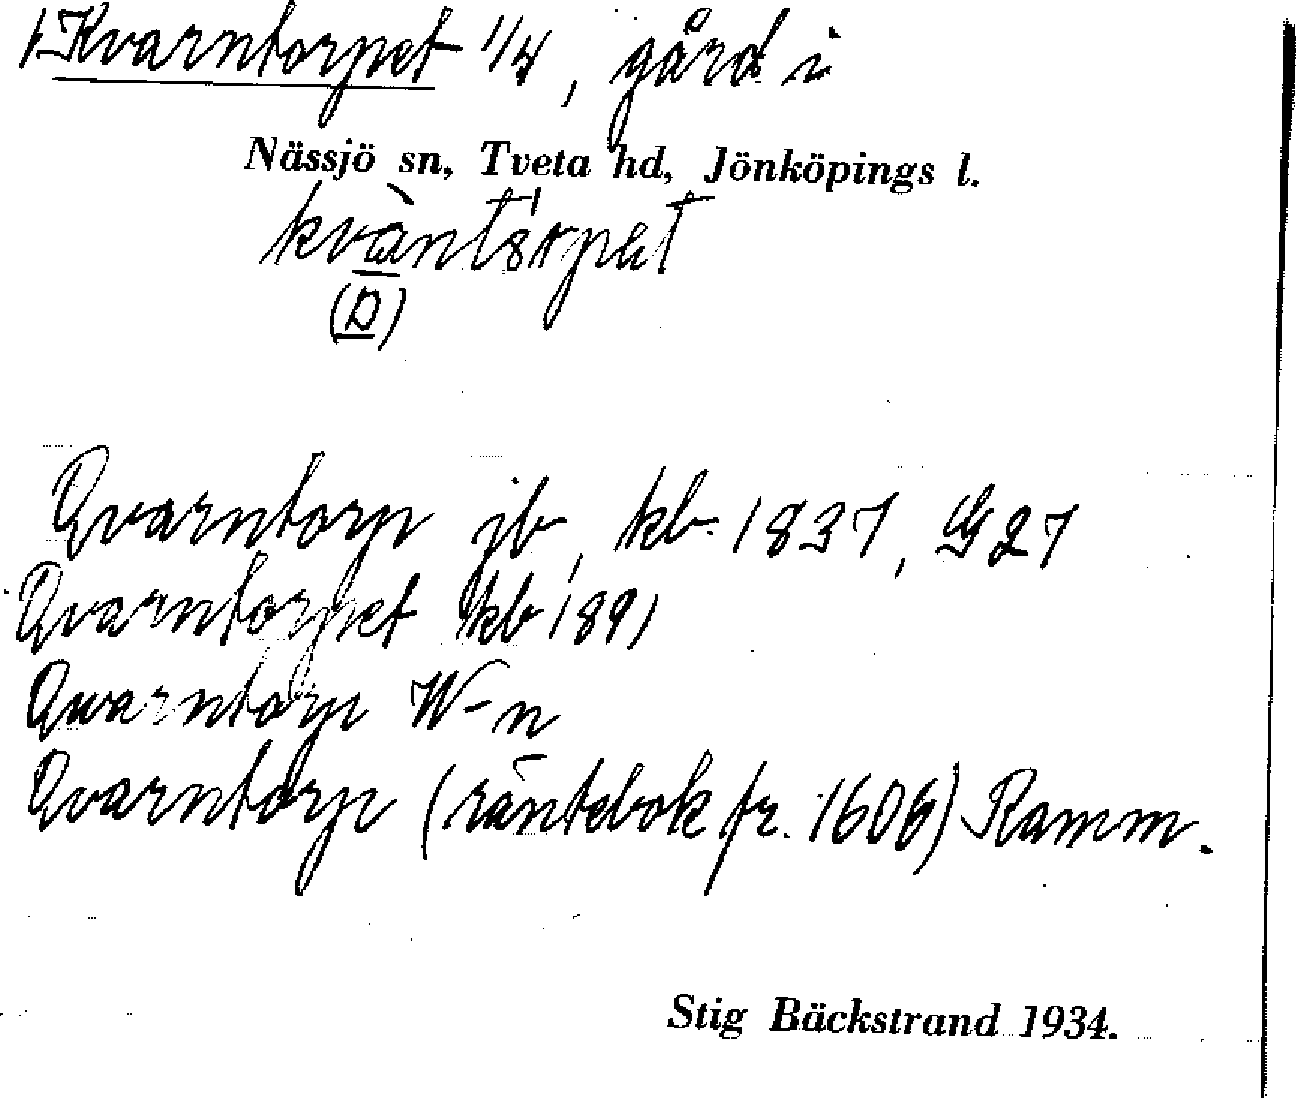 Kvarntorpet 1/4, gård i
Nässjö sn, Tveta hd, Jönköpings l.
(D)
Qvarntorp jb, kb 1837, G27
Qvarntorpet kb 1891
Qwarntorp W-n
Qvarntorp (räntebok fr. 1606) Ramm.
Stig Bäckstrand 1934.